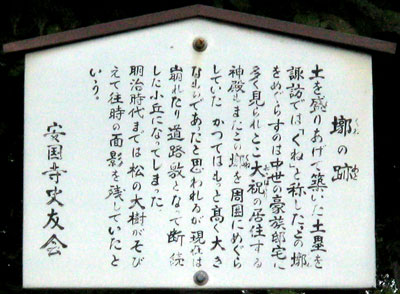 墎の跡
土を盛りあげて築いた土塁を
諏訪では「くね」と称した。この墎
をめぐらすのは中世の豪族邸宅に
多く見られ、ここ大祝の居住する
神殿もまたこの墎を周囲にめぐら
していた かつてはもっと高く大き
なものであったと思われるが現在は
崩れたり道路敷となって断続
した小丘になってしまった。
明治時代までは松の大樹がそび
えて往時の面影を残していたと
いう。
安国寺史友会